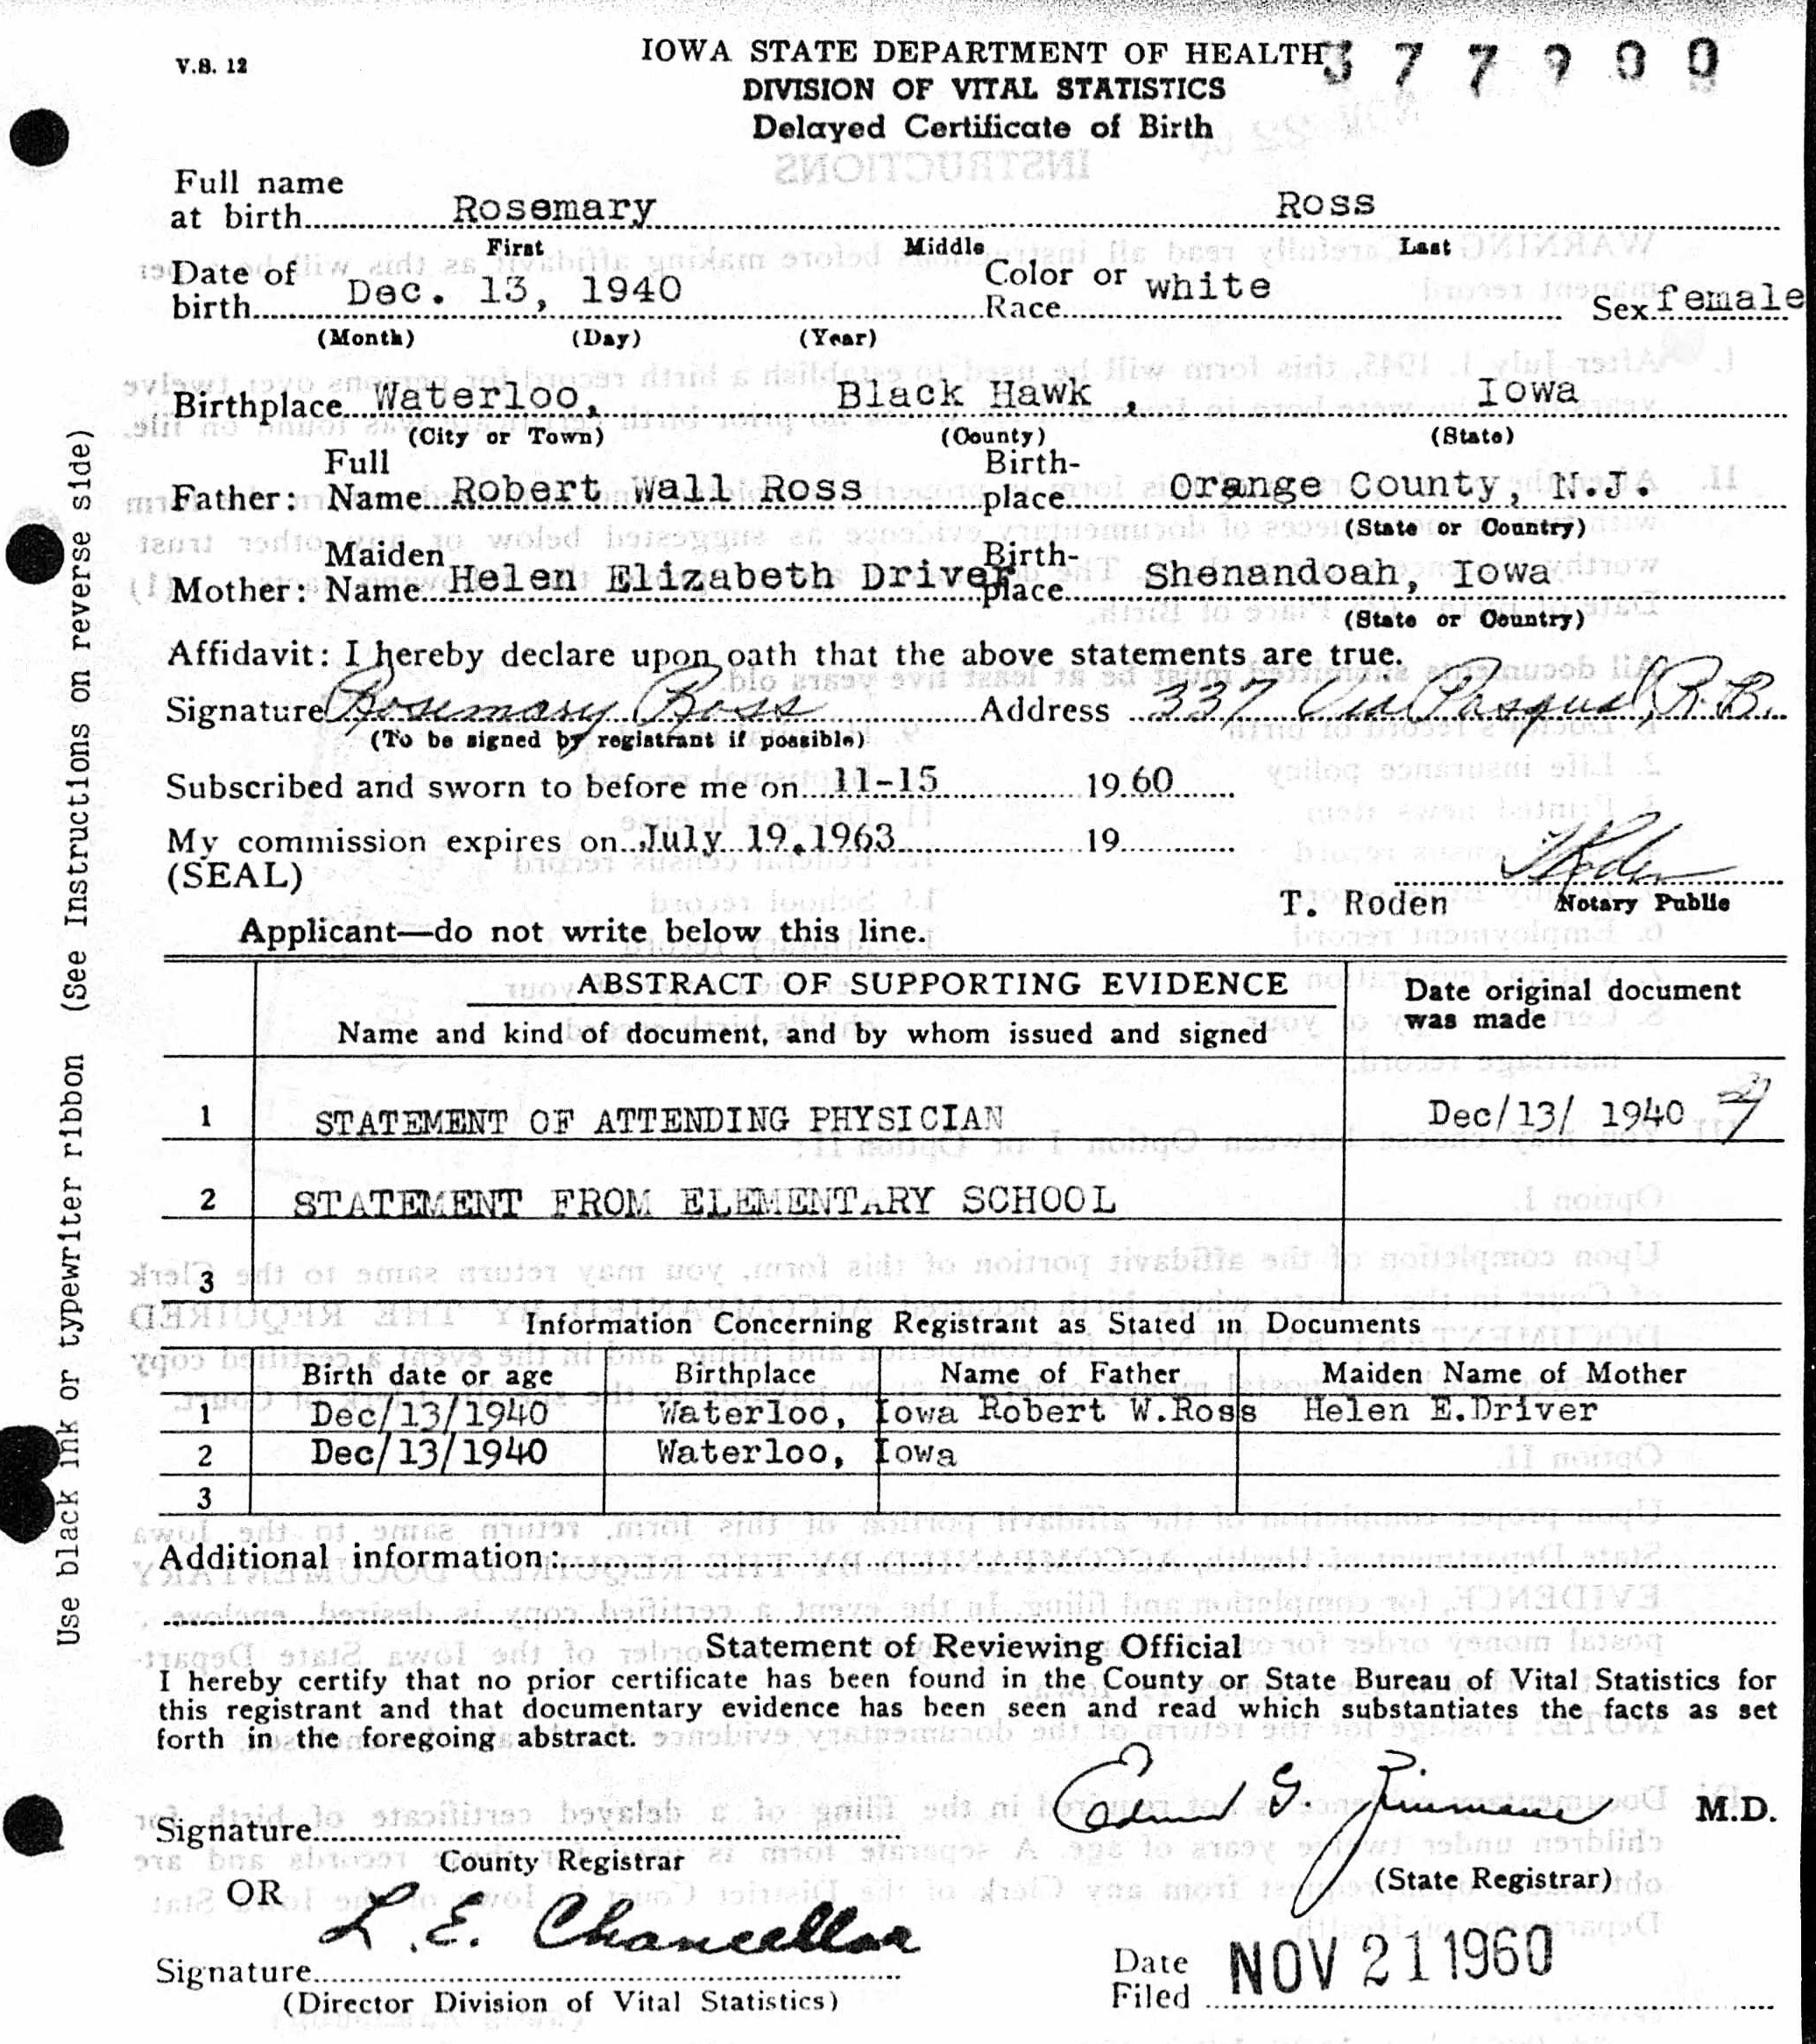 V.S. 12
IOWA STATE DEPARTMENT OF HEALTH 377900
DIVISION OF VITAL STATISTICS
Delayed Certificate of Birth
Full name
at birth Rosemary Ross
First Middle Last
Date of birth Dec. 13, 1940 Color or Race white Sex female
(Month) (Day) (Year)
Birthplace Waterloo, Black Hawk , Iowa
(City or Town) (County) (State)
Father: Full Name Robert Wall Ross Birth-place Orange County, N.J.
(State or Country)
Mother: Maiden Name Helen Elizabeth Driver Birth-place Shenandoah, Iowa
(State or Country)
Affidavit: I hereby declare upon oath that the above statements are true.
Signature Rosemary Ross Address 337 Via Pasqual, R.B.
(To be signed by registrant if possible)
Subscribed and sworn to before me on 11-15 1960
My commission expires on July 19, 1963 19
(SEAL)
T. Roden Notary Public
Applicant—do not write below this line.
ABSTRACT OF SUPPORTING EVIDENCE
Name and kind of document, and by whom issued and signed
Date original document was made
1 STATEMENT OF ATTENDING PHYSICIAN Dec/13/ 1940
2 STATEMENT FROM ELEMENTARY SCHOOL
3
Information Concerning Registrant as Stated in Documents
Birth date or age Birthplace Name of Father Maiden Name of Mother
1 Dec/13/1940 Waterloo, Iowa Robert W.Ross Helen E.Driver
2 Dec/13/1940 Waterloo, Iowa
3
Additional information:
Statement of Reviewing Official
I hereby certify that no prior certificate has been found in the County or State Bureau of Vital Statistics for
this registrant and that documentary evidence has been seen and read which substantiates the facts as set
forth in the foregoing abstract.
Signature
County Registrar
M.D.
(State Registrar)
OR
L. E. Chancellor
Signature
(Director Division of Vital Statistics)
Date Filed NOV 21 1960
Use black ink or typewriter ribbon (See Instructions on reverse side)